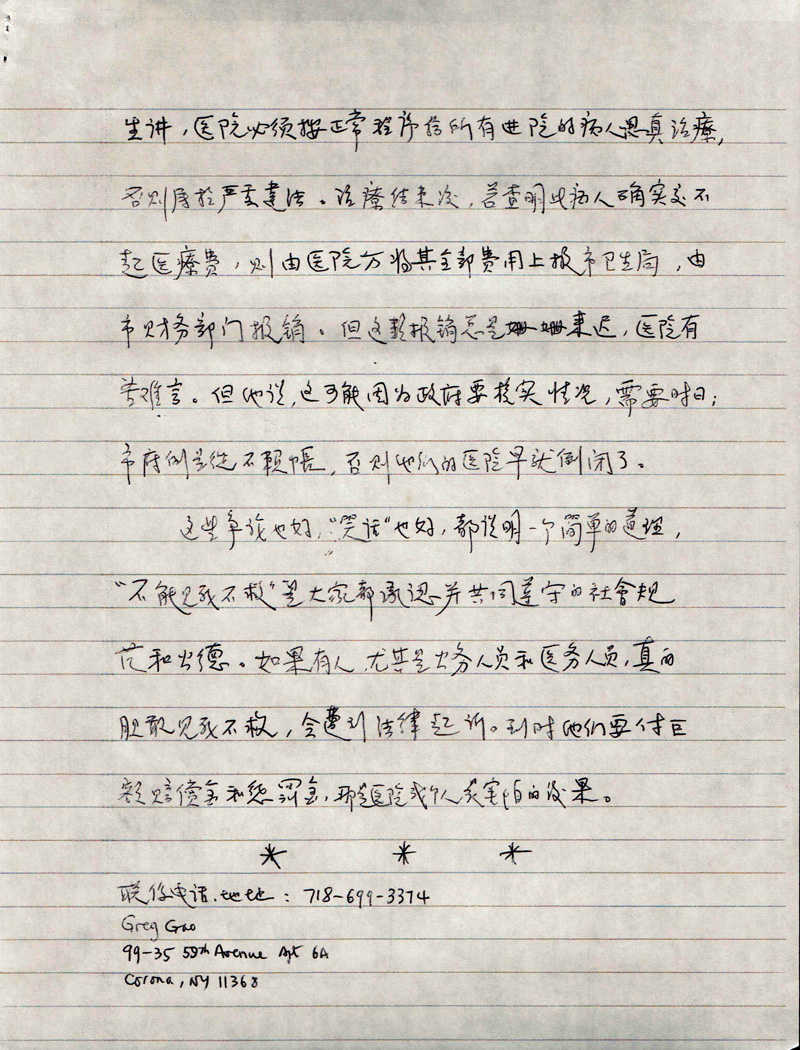 生讲，医院必须按正常程序给所有进院的病人认真治療，
否则属於严重違法。治療结束後，若查明此病人确实交不
起医療费，则由医院方将其全部费用上报市卫生局，由
市财务部门报销。但这款报销总是来迟，医院有
苦难言。但他说，这可能因为政府要核实情况，需要时日；
市府倒是從不賴帳，否则他们的医院早就倒闭了。
这些争议也好，“笑话”也好，都说明一个简单的道理，
“不能见死不救”是大家都承認并共同遵守的社會规
范和公德。如果有人，尤其是公务人员和医务人员，真的
胆敢见死不救，会遭到法律起诉。到时他们要付巨
额赔偿金和惩罚金，那是医院或个人最害怕的後果。
* * *
联係电话.地址：718-699-3374
Greg Gao
99-35 59th Avenue Apt 6A
Corona, NY 11368